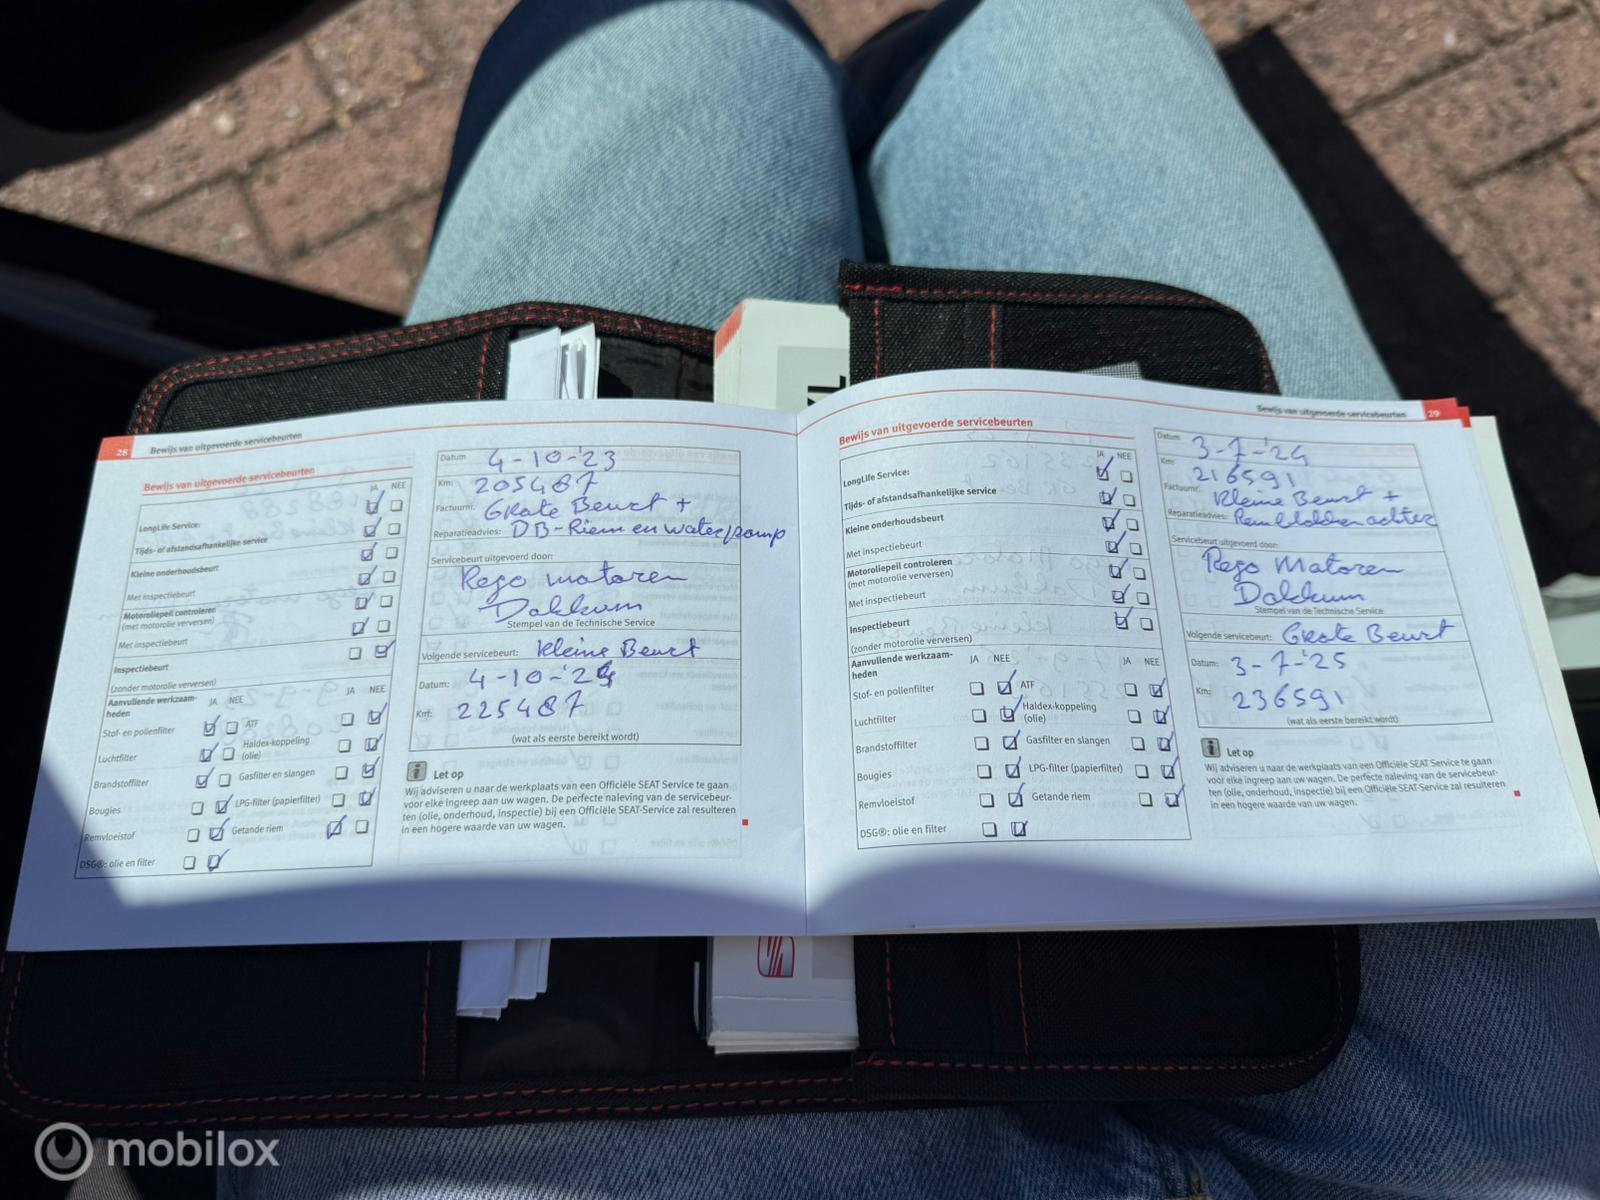 28 Bewijs van uitgevoerde servicebeurten
Bewijs van uitgevoerde servicebeurten
JA NEE
LongLife Service:
Tijds- of afstandsafhankelijke service
Kleine onderhoudsbeurt
Met inspectiebeurt
Motoroliepeil controleren
(met motorolie verversen)
Met inspectiebeurt
Inspectiebeurt
(zonder motorolie verversen)
Aanvullende werkzaam-
heden
JA NEE
JA NEE
Stof- en pollenfilter
ATF
Luchtfilter
Haldex-koppeling
(olie)
Brandstoffilter
Gasfilter en slangen
Bougies
LPG-filter (papierfilter)
Remvloeistof
Getande riem
DSG®: olie en filter
Datum 4-10-'23
Km: 205487
Factuurnr. Grote Beurt +
Reparatieadvies: DB-Riem en waterpomp
Servicebeurt uitgevoerd door:
Rego motoren
Dokkum
Stempel van de Technische Service
Volgende servicebeurt: Kleine Beurt
Datum: 4-10-'24
Km: 225487
(wat als eerste bereikt wordt)
i Let op
Wij adviseren u naar de werkplaats van een Officiële SEAT Service te gaan
voor elke ingreep aan uw wagen. De perfecte naleving van de servicebeur-
ten (olie, onderhoud, inspectie) bij een Officiële SEAT-Service zal resulteren
in een hogere waarde van uw wagen.
Bewijs van uitgevoerde servicebeurten 29
Bewijs van uitgevoerde servicebeurten
JA NEE
LongLife Service:
Tijds- of afstandsafhankelijke service
Kleine onderhoudsbeurt
Met inspectiebeurt
Motoroliepeil controleren
(met motorolie verversen)
Met inspectiebeurt
Inspectiebeurt
(zonder motorolie verversen)
Aanvullende werkzaam-
heden
JA NEE
JA NEE
Stof- en pollenfilter
ATF
Luchtfilter
Haldex-koppeling
(olie)
Brandstoffilter
Gasfilter en slangen
Bougies
LPG-filter (papierfilter)
Remvloeistof
Getande riem
DSG®: olie en filter
Datum: 3-7-'24
Km: 216591
Factuurnr. Kleine Beurt +
Reparatieadvies: Remblokken achter
Servicebeurt uitgevoerd door:
Rego Motoren
Dokkum
Stempel van de Technische Service
Volgende servicebeurt: Grote Beurt
Datum: 3-7-'25
Km: 236591
(wat als eerste bereikt wordt)
i Let op
Wij adviseren u naar de werkplaats van een Officiële SEAT Service te gaan
voor elke ingreep aan uw wagen. De perfecte naleving van de servicebeur-
ten (olie, onderhoud, inspectie) bij een Officiële SEAT-Service zal resulteren
in een hogere waarde van uw wagen.
mobilox